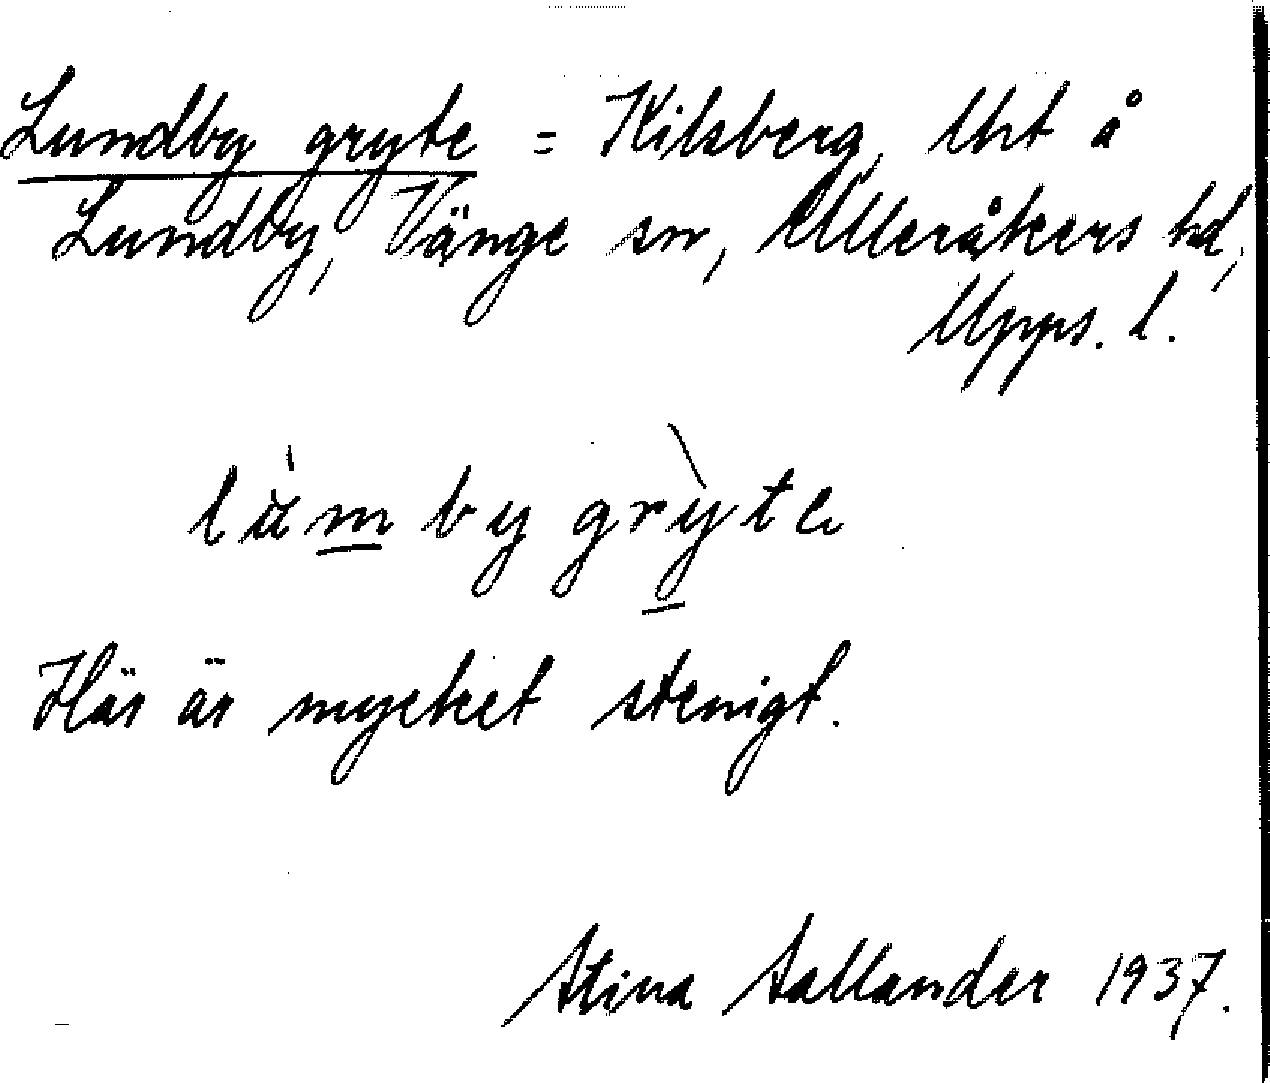 Lundby gryte = Kilsberg, lht å
Lundby, Vänge sn, Ulleråkers hd,
Upps. l.
lùmbygrỳte
Här är mycket stenigt.
Stina Sallander 1937.